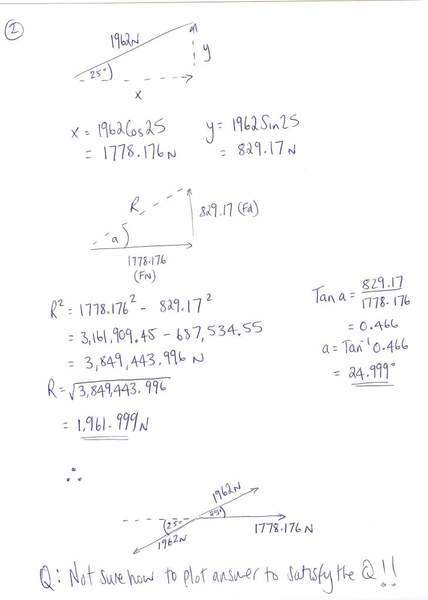 2
1962N
25°
y
x
x = 1962Cos25 y = 1962Sin25
= 1778.176N = 829.17N
R
829.17 (Fd)
a
1778.176
(FN)
R² = 1778.176² - 829.17²
= 3,161,909.45 - 687,534.55
= 3,849,443.996 N
R = √3,849,443.996
= 1,961.999N
Tan a = 829.17
1778.176
= 0.466
a = Tan⁻¹ 0.466
= 24.999°
∴
1962N
25°
25°
1962N
1778.176N
Q: Not sure how to plot answer to satisfy the Q!!